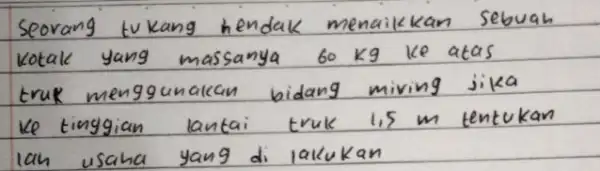 seorang tukang hendak menaikkan sebuah
kotak yang massanya 60 kg ke atas
truk menggunakan bidang miring jika
ke tinggian lantai truk 1,5 m tentukan
lah usaha yang di lakukan